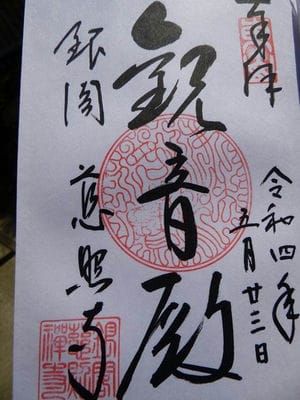 奉拝
令和四年
五月廿三日
観音殿
銀閣
慈照寺